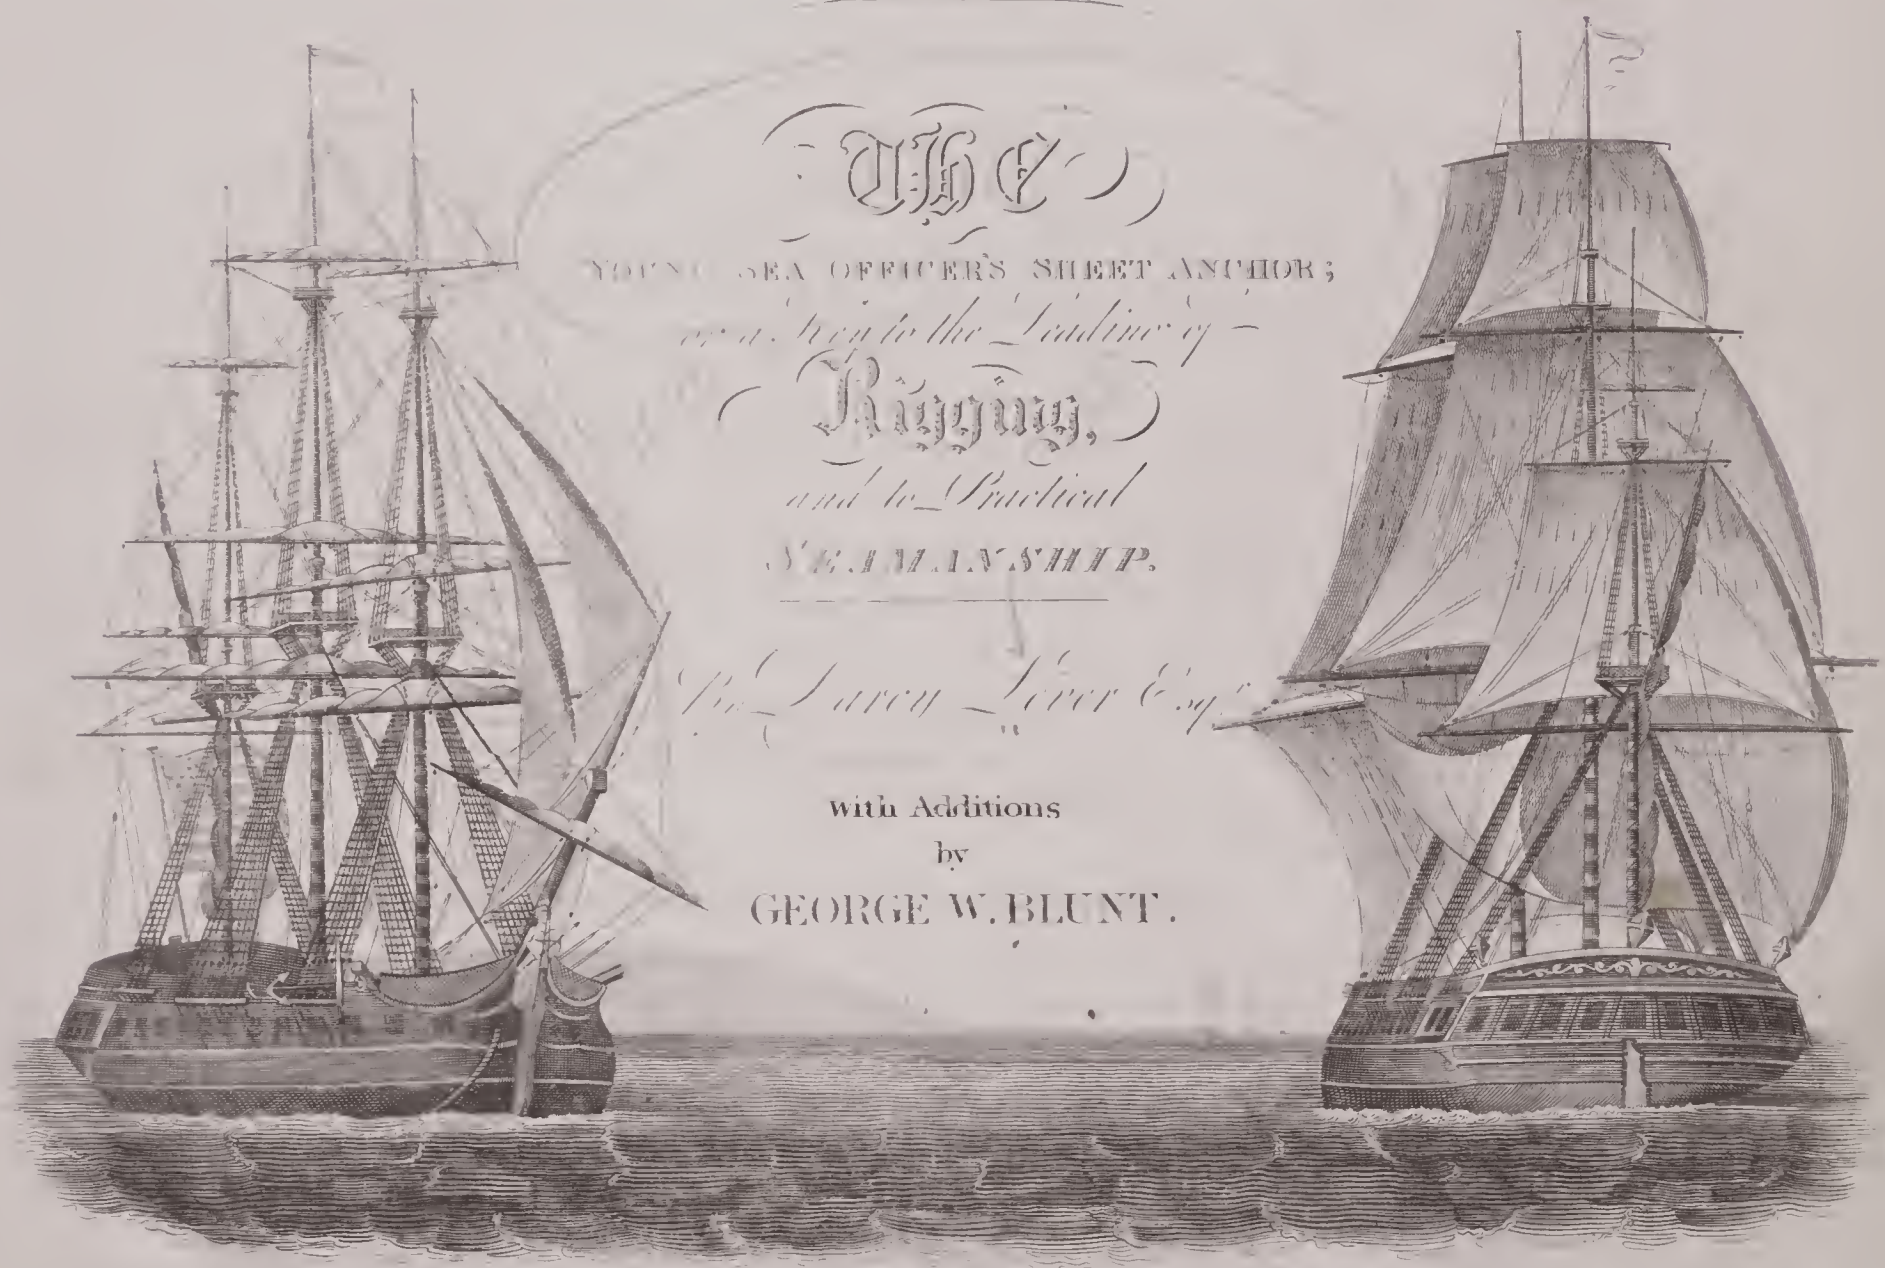 The
YOUNG SEA OFFICER'S SHEET ANCHOR;
or a Key to the Leading of
Rigging,
and to Practical
SEAMANSHIP.
By Darcy Lever Esqr.
with Additions
by
GEORGE W. BLUNT.